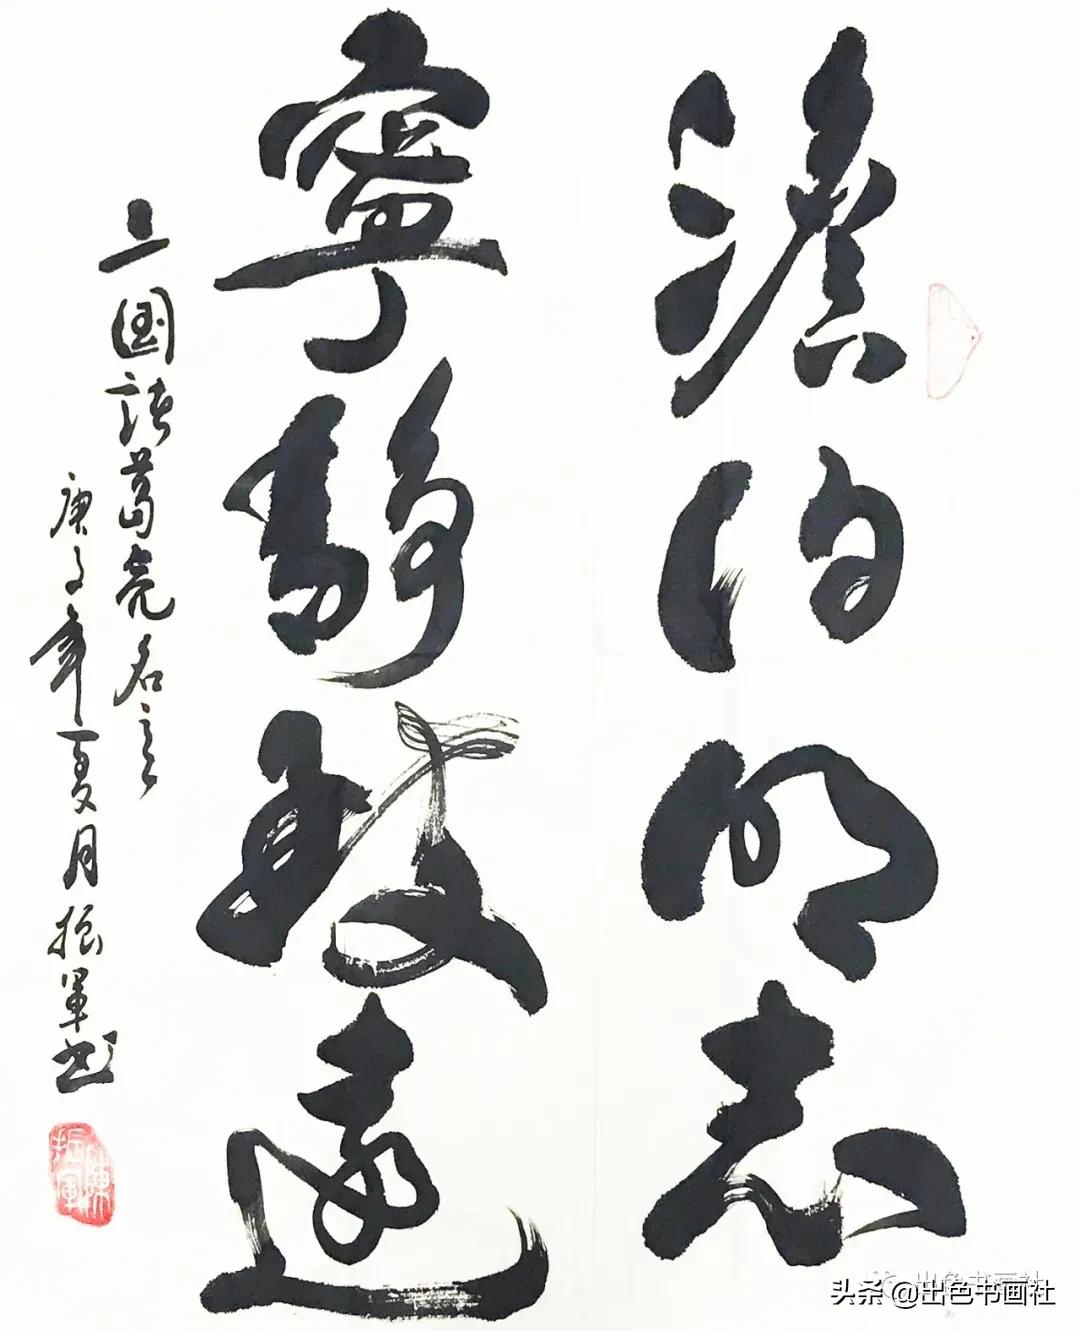 澹泊明志
寧靜致遠
三国诸葛亮名言
庚子年夏月振军书
陳振軍
头条@出色书画社